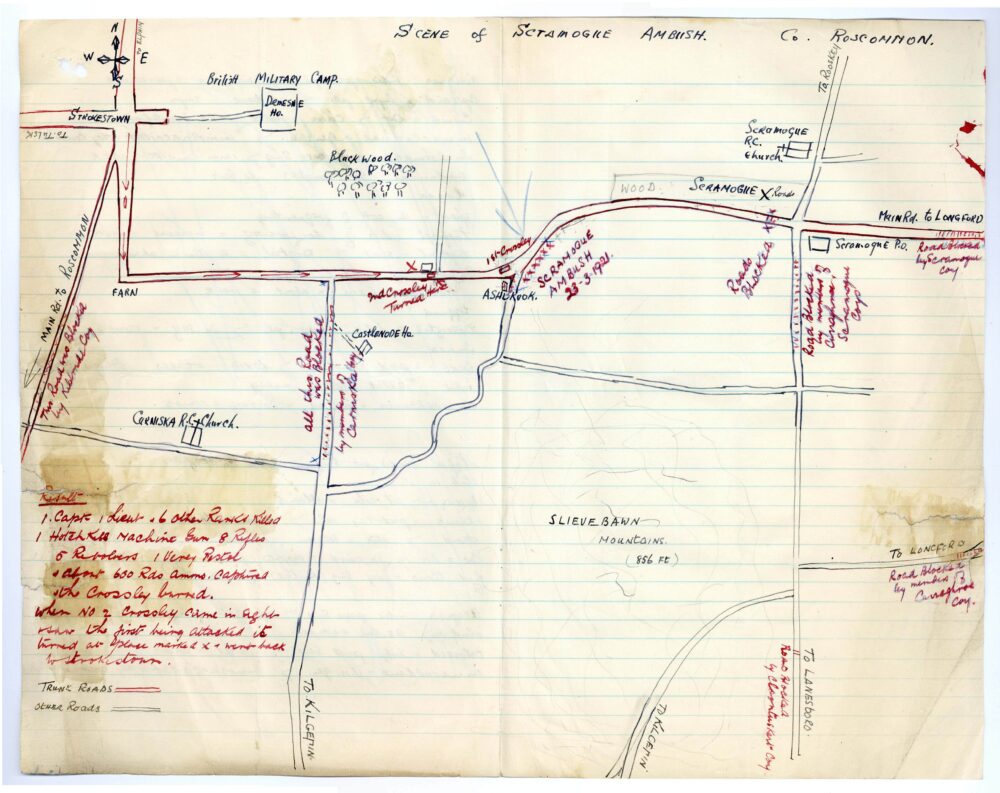 SCENE of SCRAMOGUE AMBUSH. Co. ROSCOMMON.
N
W E
S
To Elphin
To Rooskey
British MILITARY CAMP.
DEMESNE
Ho.
STROKESTOWN
To TULSK
Blackwood.
SCRAMOGUE
R.C.
Church
WOOD.
SCRAMOGUE X Roads
MAIN Rd. to LONGFORD
Road Blocked
by Scramogue
Coy
Scramogue P.O.
1st Crossley
SCRAMOGUE
AMBUSH
23-3-1921.
X
2nd Crossley
Turned Here
ASHBROOK.
Roads
Blocked
Road Blocked
by members of
Scramogue
FARN
MAIN Rd. to ROSCOMMON
This Road was Blocked
by Coy
CASTLENODE Ho.
all this Road
was Blocked
by members of
CARNISKA R.C. Church.
Result
1 Capt 1 Lieut & 6 Other Ranks Killed
1 Hotchkiss Machine Gun 8 Rifles
5 Revolvers 1 Verey Pistol
& about 600 Rds Ammo. Captured
& the Crossley burned.
When No. 2 Crossley came in sight
& saw the first being attacked it
turned at place marked X & went back
to Strokestown.
TRUNK ROADS
OTHER ROADS
SLIEVEBAWN
MOUNTAINS.
(856 FT)
To LONGFORD
Road Blocked
by members of
Coy.
To KILGEFIN
To KILGEFIN
To LANESBORO.
Road Blocked
by Coy